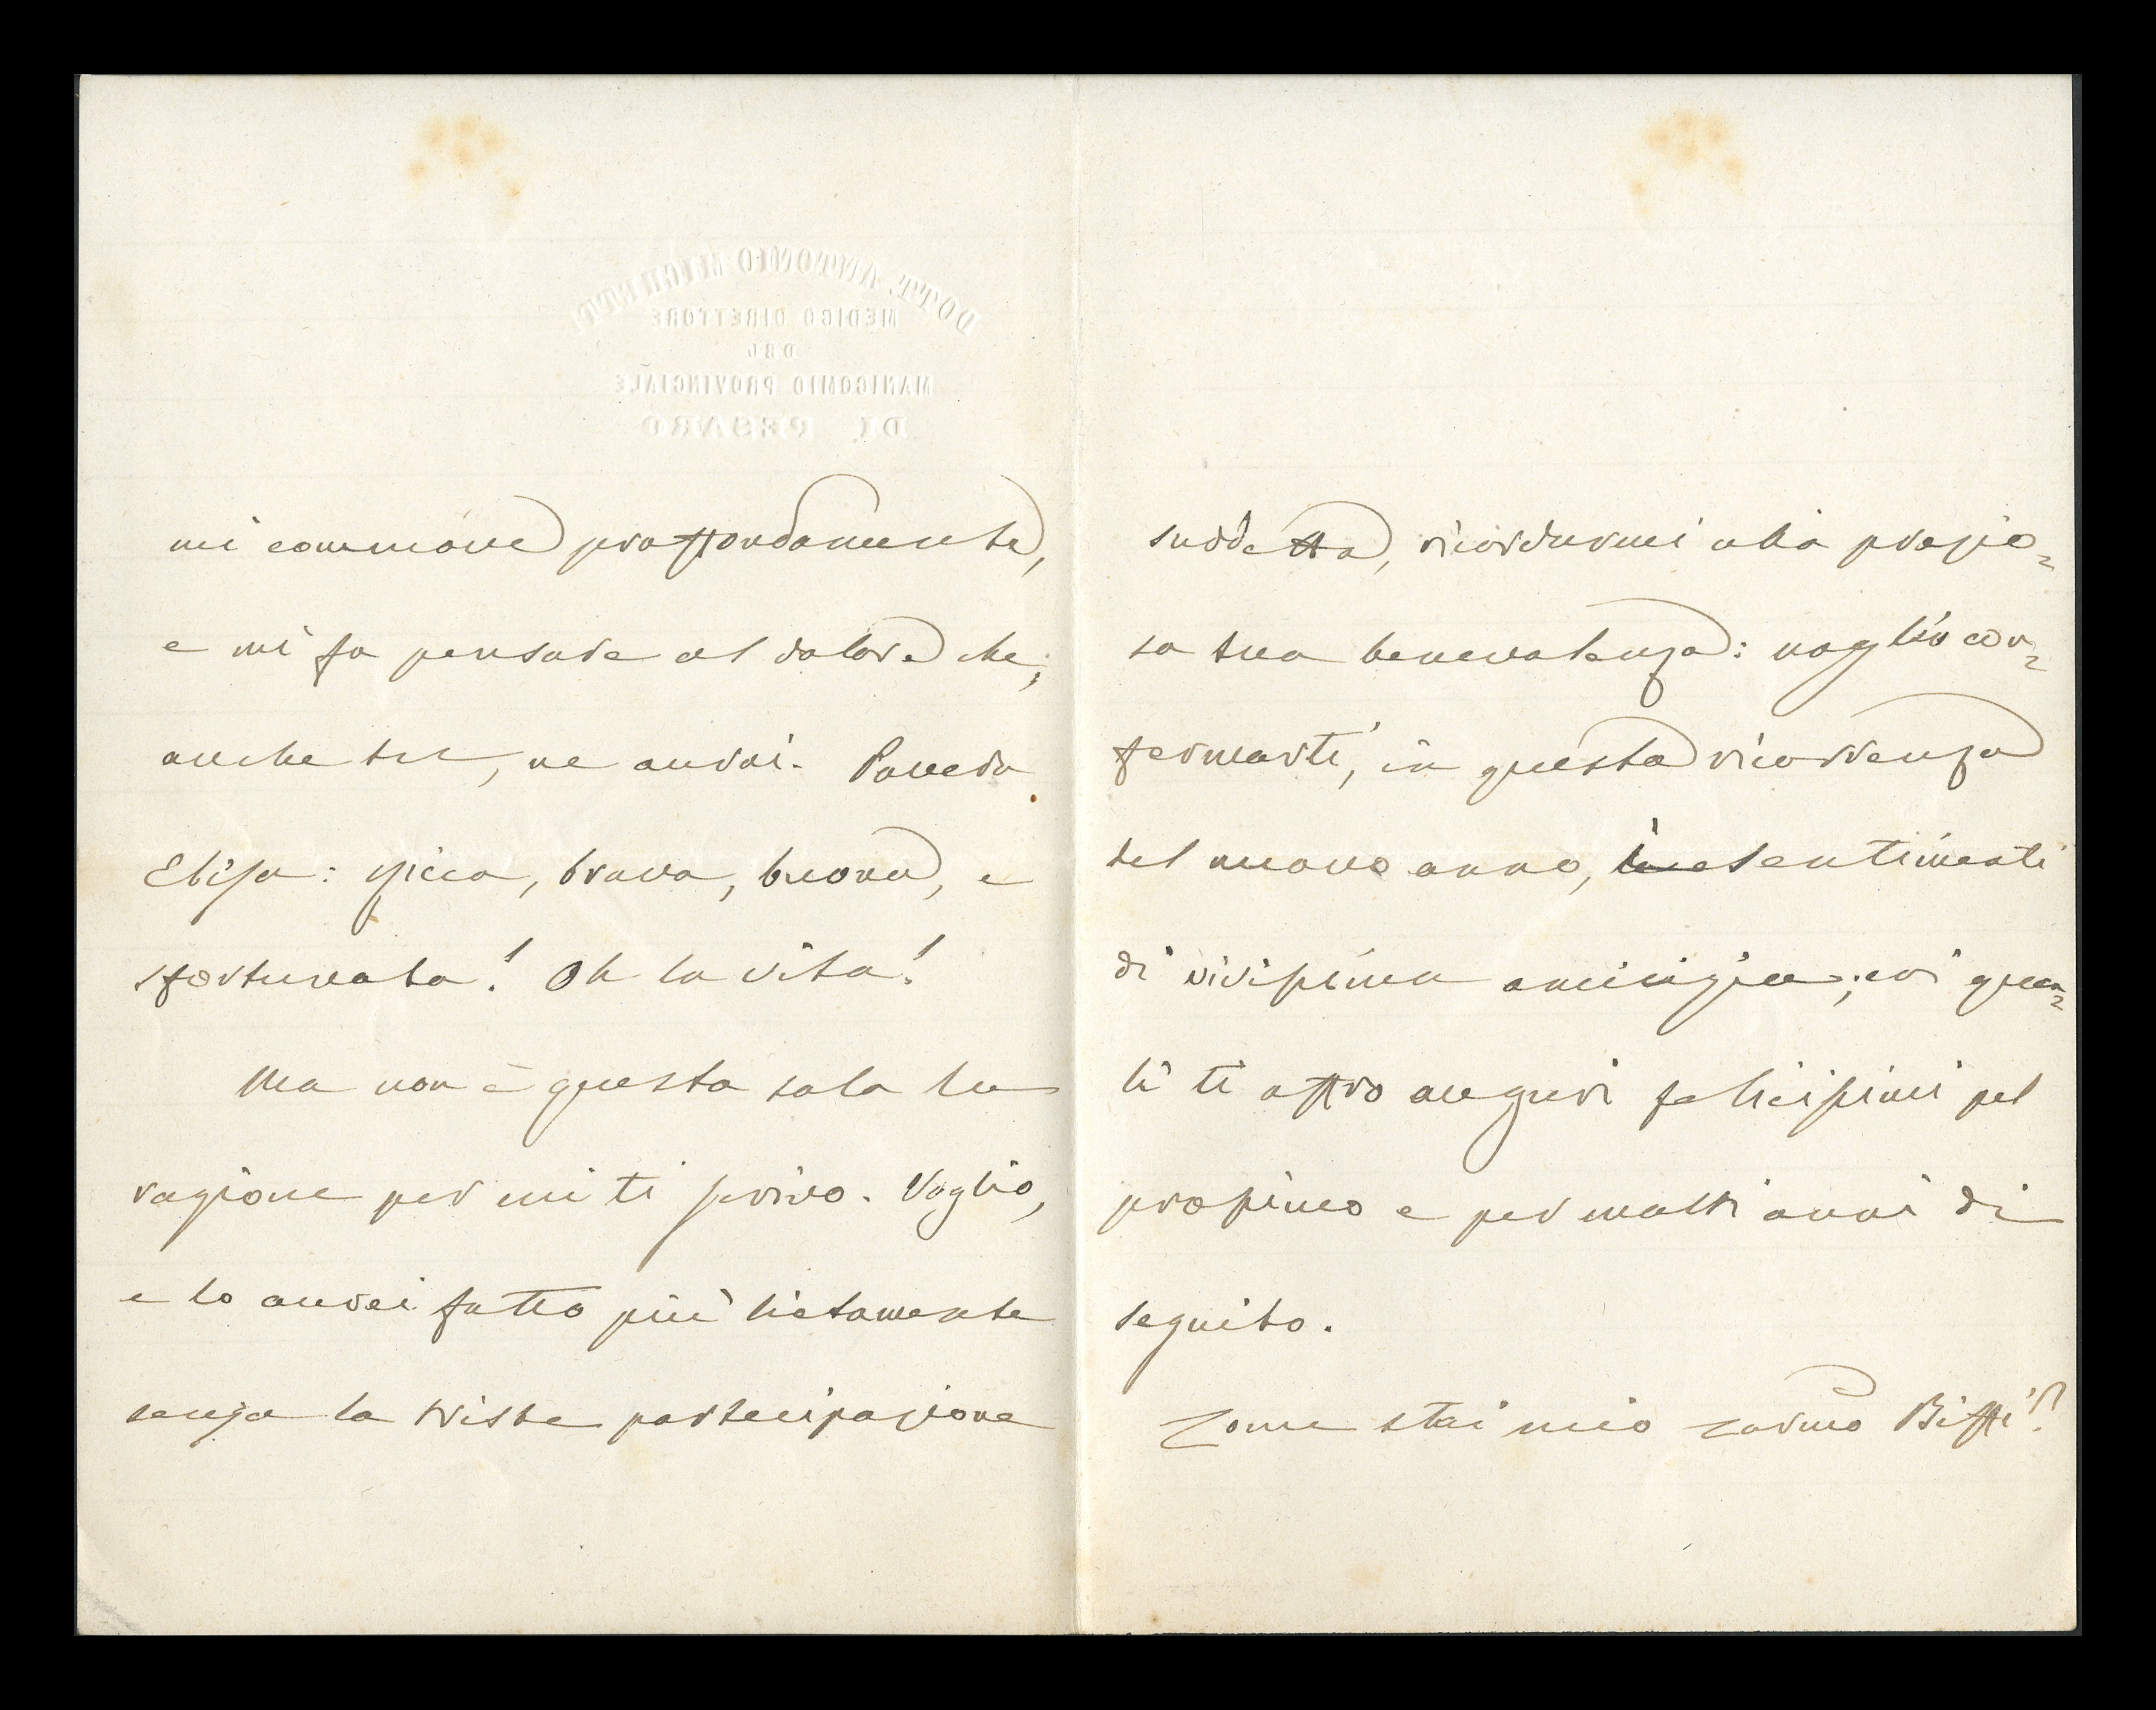 DOTT. ANTONIO MICHETTI
MEDICO DIRETTORE
DEL
MANICOMIO PROVINCIALE
DI PESARO
mi commove profondamente,
e mi fa pensare al dolore che,
anche tu, ne avrai. Povera
Elisa: ricca, brava, buona, e
sfortunata! Oh la vita!
Ma non è questa sola la
ragione per cui ti scrivo. Voglio,
e lo avrei fatto più lietamente
senza la triste partecipazione
suddetta, ricordarmi alla prezio=
sa tua benevolenza: voglio con=
fermarti, in questa ricorrenza
del nuovo anno, i sentimenti
di vivissima amicizia; coi qua=
li ti offro auguri felicissimi pel
prossimo e per molti anni di
seguito.
Come stai mio carmo Biffi?